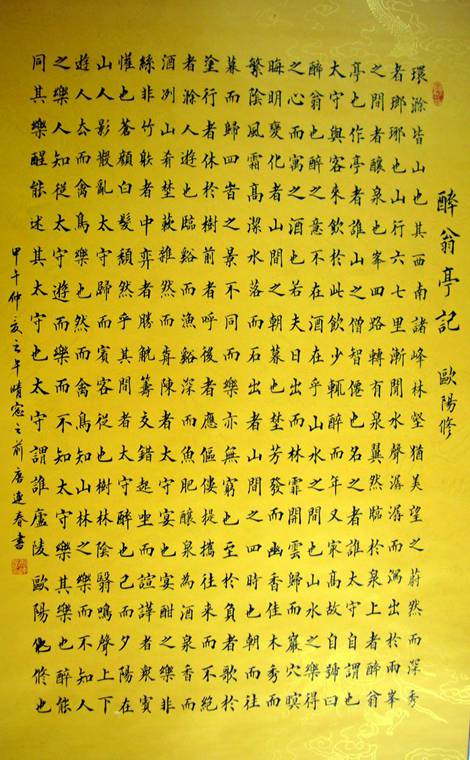 醉翁亭記 歐陽修
環滁皆山也其西南諸峰林壑猶美望之蔚然而深秀
者瑯琊也山行六七里漸聞水聲潺潺而瀉出於兩峯
之間者釀泉也峯回路轉有亭翼然臨於泉上者醉翁
亭也作亭者誰山之僧智僊也名之者誰太守自謂也
太守與客來飲於此飲少輒醉而年又最高故自號曰
醉翁也醉翁之意不在酒在乎山水之間也山水之樂得
之心而寓之酒也若夫日出而林霏開雲歸而巖穴暝
晦明變化者山間之朝暮也野芳發而幽香佳木秀而
繁陰風霜高潔水落而石出者山間之四時也朝而往
暮而歸四時之景不同而樂亦無窮也至於負者歌於
塗行者休於樹前者呼後者應傴僂提攜往來而不絕
者滁人遊也臨谿而漁谿深而魚肥釀泉為酒泉香而
酒洌山肴野蔌雜然而前陳者太守宴也宴酣之樂非
絲非竹射者中弈者勝觥籌交錯起坐而諠譁者眾賓
懽也蒼顏白髮頹然乎其間者太守醉也已而夕陽在
山人影散亂太守歸而賓客從也樹林陰翳鳴聲上下
遊人去而禽鳥樂也然而禽鳥知山林之樂而不知人
之樂人知從太守遊而樂而不知太守之樂其樂也醉能
同其樂醒能述其太守也太守謂誰廬陵歐陽修也
甲午仲亥之午晴窗之前唐連春書